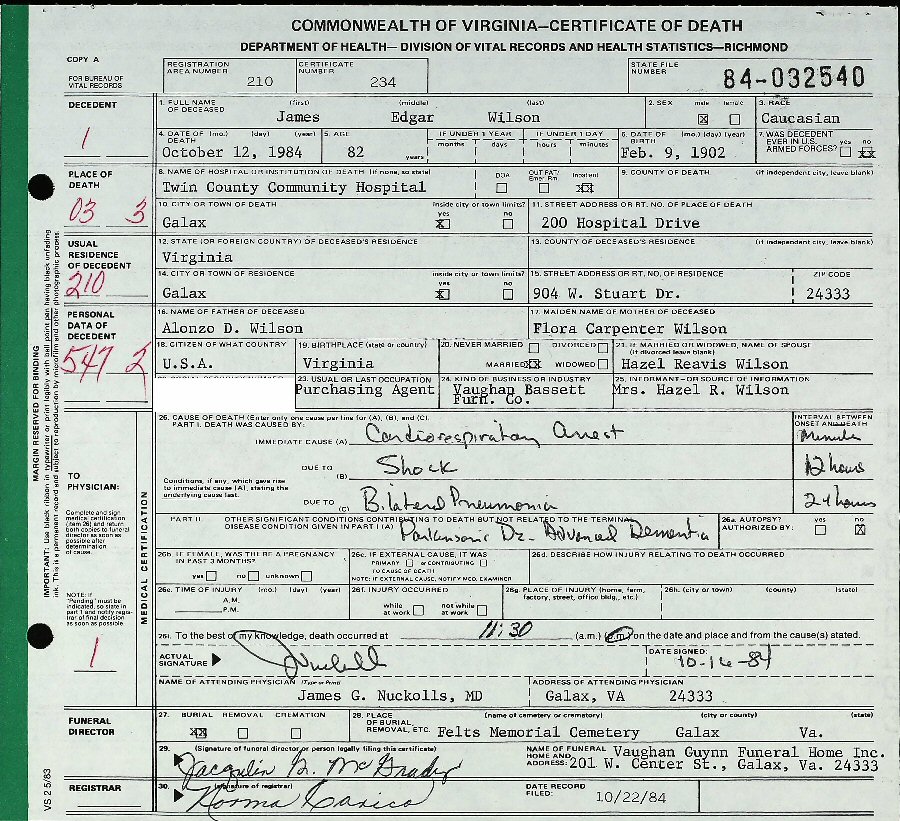 COMMONWEALTH OF VIRGINIA—CERTIFICATE OF DEATH
DEPARTMENT OF HEALTH— DIVISION OF VITAL RECORDS AND HEALTH STATISTICS—RICHMOND
COPY A
FOR BUREAU OF VITAL RECORDS
REGISTRATION AREA NUMBER 210
CERTIFICATE NUMBER 234
STATE FILE NUMBER 84-032540
DECEDENT
1
1. FULL NAME OF DECEASED (first) (middle) (last)
James Edgar Wilson
2. SEX male female
X
3. RACE
Caucasian
4. DATE OF DEATH (mo.) (day) (year)
October 12, 1984
5. AGE
82 years
IF UNDER 1 YEAR
months days
IF UNDER 1 DAY
hours minutes
6. DATE OF BIRTH (mo.) (day) (year)
Feb. 9, 1902
7. WAS DECEDENT EVER IN U.S. ARMED FORCES? yes no
XX
PLACE OF DEATH
03 3
8. NAME OF HOSPITAL OR INSTITUTION OF DEATH (If none, so state)
Twin County Community Hospital
DOA OUT PAT/ Emer Rm Inpatient
XX
9. COUNTY OF DEATH (if independent city, leave blank)
10. CITY OR TOWN OF DEATH inside city or town limits? yes no
Galax X
11. STREET ADDRESS OR RT. NO. OF PLACE OF DEATH
200 Hospital Drive
USUAL RESIDENCE OF DECEDENT
210
12. STATE (OR FOREIGN COUNTRY) OF DECEASED'S RESIDENCE
Virginia
13. COUNTY OF DECEASED'S RESIDENCE (if independent city, leave blank)
14. CITY OR TOWN OF RESIDENCE inside city or town limits? yes no
Galax X
15. STREET ADDRESS OR RT. NO. OF RESIDENCE ZIP CODE
904 W. Stuart Dr. 24333
PERSONAL DATA OF DECEDENT
547 2
16. NAME OF FATHER OF DECEASED
Alonzo D. Wilson
17. MAIDEN NAME OF MOTHER OF DECEASED
Flora Carpenter Wilson
18. CITIZEN OF WHAT COUNTRY
U.S.A.
19. BIRTHPLACE (state or country)
Virginia
20. NEVER MARRIED DIVORCED
MARRIED XX WIDOWED
21. IF MARRIED OR WIDOWED, NAME OF SPOUSE (if divorced leave blank)
Hazel Reavis Wilson
23. USUAL OR LAST OCCUPATION
Purchasing Agent
24. KIND OF BUSINESS OR INDUSTRY
Vaughan Bassett
Furn. Co.
25. INFORMANT-OR SOURCE OF INFORMATION
Mrs. Hazel R. Wilson
MARGIN RESERVED FOR BINDING
IMPORTANT: Use black ribbon in typewriter or print legibly with ball point pen having black unfading
ink. This is a permanent record and subject to reproduction by microfilm and other photographic process.
TO PHYSICIAN:
Complete and sign medical certification (item 26) and return both copies to funeral director as soon as possible after determination of cause.
NOTE: If "Pending" must be indicated, so state in part 1 and notify registrar of final decision as soon as possible
1
MEDICAL CERTIFICATION
26. CAUSE OF DEATH (Enter only one cause per line for (A), (B), and (C).
PART I. DEATH WAS CAUSED BY:
INTERVAL BETWEEN ONSET AND DEATH
IMMEDIATE CAUSE (A) Cardiorespiratory arrest Minutes
DUE TO (B) Shock 12 hours
Conditions, if any, which gave rise to immediate cause (A), stating the underlying cause last.
DUE TO (C) Bilateral Pneumonia 24 hours
PART II. OTHER SIGNIFICANT CONDITIONS CONTRIBUTING TO DEATH BUT NOT RELATED TO THE TERMINAL DISEASE CONDITION GIVEN IN PART I (A)
Parkinson's Dz. Advanced Dementia
26a. AUTOPSY? AUTHORIZED BY: yes no
X
26b. IF FEMALE, WAS THERE A PREGNANCY IN PAST 3 MONTHS?
yes no unknown
26c. IF EXTERNAL CAUSE, IT WAS
PRIMARY or CONTRIBUTING
TO CAUSE OF DEATH
NOTE: IF EXTERNAL CAUSE, NOTIFY MED. EXAMINER
26d. DESCRIBE HOW INJURY RELATING TO DEATH OCCURRED
26e. TIME OF INJURY (mo.) (day) (year)
A.M.
P.M.
26f. INJURY OCCURRED
while at work not while at work
26g. PLACE OF INJURY (home, farm, factory, street, office bldg., etc.)
26h. (city or town) (county) (state)
26i. To the best of my knowledge, death occurred at 11:30 (a.m.) (p.m.) on the date and place and from the cause(s) stated.
ACTUAL SIGNATURE
DATE SIGNED: 10-16-84
NAME OF ATTENDING PHYSICIAN (Type or Print)
James G. Nuckolls, MD
ADDRESS OF ATTENDING PHYSICIAN
Galax, VA 24333
FUNERAL DIRECTOR
27. BURIAL REMOVAL CREMATION
XX
28. PLACE OF BURIAL, REMOVAL, ETC. (name of cemetery or crematory) (city or county) (state)
Felts Memorial Cemetery Galax Va.
29. (Signature of funeral director or person legally filing this certificate)
Jacquelin B. McGrady
NAME OF FUNERAL HOME AND ADDRESS: Vaughan Guynn Funeral Home Inc.
201 W. Center St., Galax, Va. 24333
REGISTRAR
30. (signature of registrar)
Norma Carico
DATE RECORD FILED: 10/22/84
VS 2 5/83